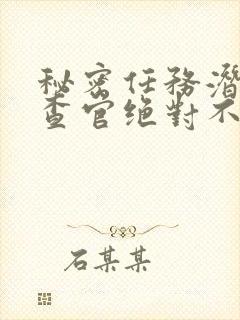 秘密任務潛
查官絕對不
石某某